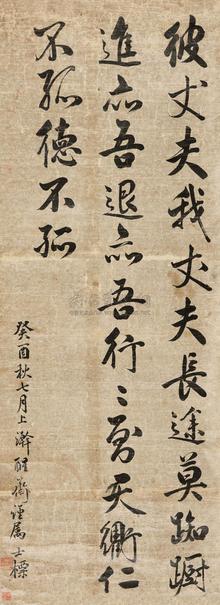 彼丈夫我丈夫長途莫踟躕
進亦吾退亦吾行〻天衢仁
不孤德不孤
癸酉秋七月上澣醒蘅屬士標